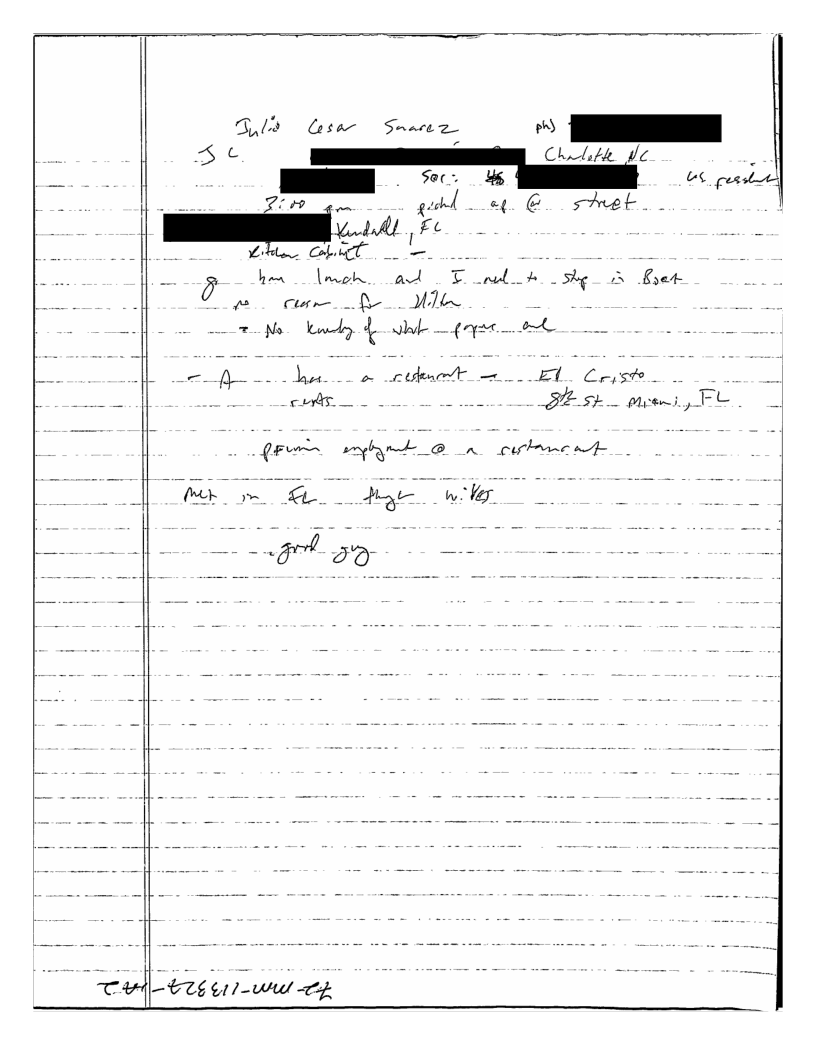 Julio Cesar Suarez ph)
J C Charlotte NC
Soc: US resident
3:00 pm picked up @ street
Kendall, FL
Kitchen Cabinet -
lunch and I need to stop in
no reason for
- No of what are
- A has a restaurant - El Cristo
rents 8th St Miami, FL
employment @ a restaurant
Met in FL wives
- good guy
72-MM-113327-